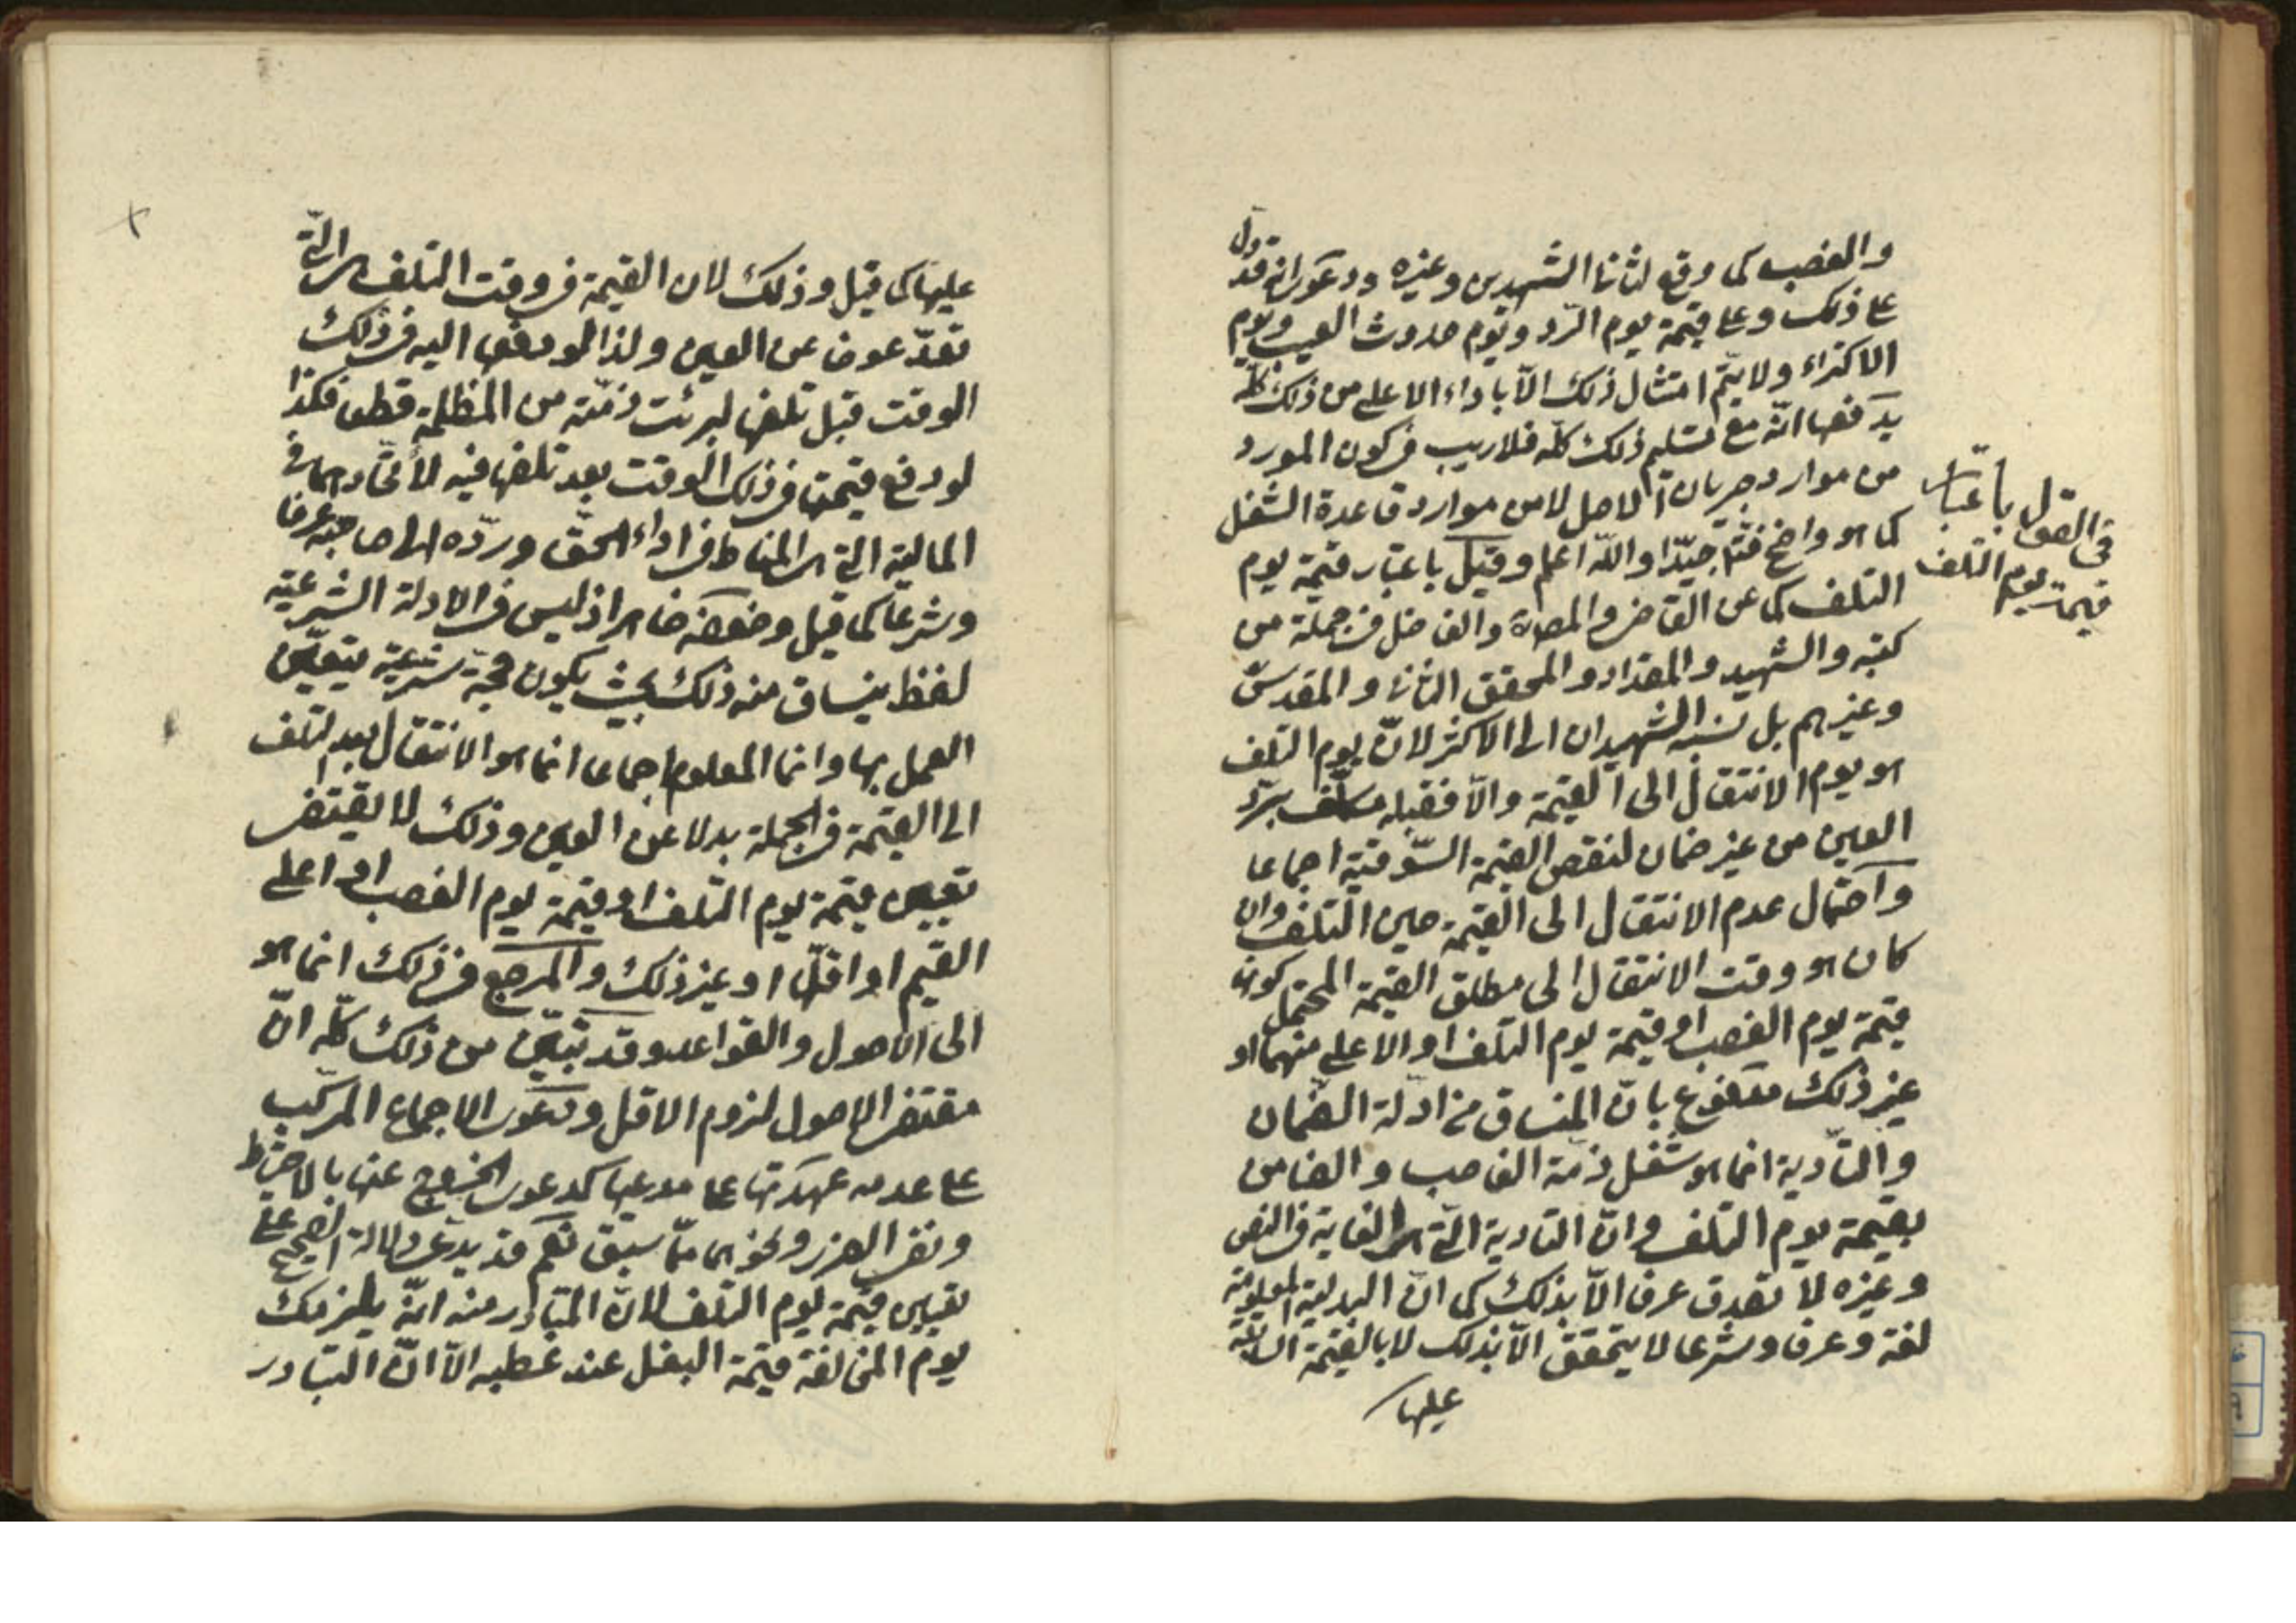 والغصب كما وقع لثانى الشهيدين وغيره ودعوى انه قد دل
على ذلك وعلى قيمة يوم الرّد ويوم حدوث العيب ويوم
الاكتراء ولا يتمّ امتثال ذلك الّا باداء الاعلى من ذلك كلّه
يدفعها انّه مع تسليم ذلك كلّه فلا ريب فى كون المورد
من موارد جريان الاصل لا من موارد قاعدة الشغل
كما هو واضح فتامل جيّدا والله اعلم وقيل باعتبار قيمة يوم
التلف كما عن القاضى والفاضل فى جملة من
كتبه والشهيد والمقداد والمحقق الثانى والمقدسّ
وغيرهم بل نسبه الشهيدان الى الاكثر لانّ يوم التلف
هو يوم الانتقال الى القيمة والّا فقبله مكلّف بردّ
العين من غير ضمان لنقص القيمة السّوقية اجماعا
واحتمال عدم الانتقال الى القيمة حين التلف وان
كان هو وقت الانتقال الى مطلق القيمة المحتمل كونها
قيمة يوم الغصب او قيمة يوم التلف او الاعلى منهما او
غير ذلك مدفوع بانّ المنساق من ادلّة الضمان
والتّادية انما هو شغل ذمّة الغاصب والضامن
بقيمة يوم التلف وانّ التادية الّتى هى الغاية فى النص
وغيره لا تصدق عرفا الّا بذلك كما انّ البدلية المعلومة
لغة وعرفا وشرعا لا يتحقق الّا بذلك لا بالقيمة السابقة
عليها
فى القول باعتبار
قيمة يوم التلف
عليها كما قيل وذلك لان القيمة فى وقت التلف هى الّتى
تعدّ عوضا عن العين ولذا لو دفعها اليه فى ذلك
الوقت قبل تلفها لبرئت ذمّته من المظلمة قطعا فكذا
لو دفع قيمتها فى ذلك الوقت بعد تلفها فيه لاتّحادهما فى
المالية التى هى المناط فى اداء الحقّ وردّه الى صاحبه عرفا
وشرعا كما قيل وضعفه ظاهر اذ ليس فى الادلة الشرعيّة
لفظ ينساق منه ذلك بحيث يكون حجّة شرعيّة يتعيّن
العمل بها وانما المعلوم اجماعا انما هو الانتقال بعد التلف
الى القيمة فى الجملة بدلا عن العين وذلك لا يقتضى
تعيين قيمة يوم التّلف او قيمة يوم الغصب او اعلى
القيم او اقلّها او غير ذلك والمرجع فى ذلك انما هو
الى الاصول والقواعد وقد تبيّن من ذلك كلّه انّ
مقتضى الاصول لزوم الاقل ودعوى الاجماع المركّب
على عدمه عهدتها على مدعيها كدعوى الخروج عنها بالاحتياط
ونفى الضرر ونحوهما ممّا سبق نعم قد يدعى دلالة الصّحيح على
تعيين قيمة يوم التلف لانّ المتبادر منه انّه يلزمك
يوم المخالفة قيمة البغل عند عطبه الّا انّ التبادر